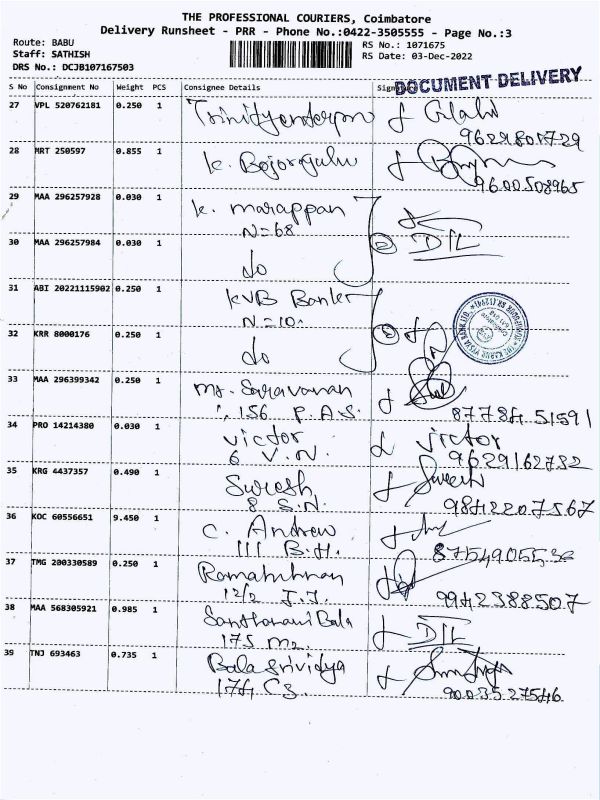 THE PROFESSIONAL COURIERS, Coimbatore
Delivery Runsheet - PRR - Phone No.:0422-3505555 - Page No.:3
Route: BABU
Staff: SATHISH
DRS No.: DCJB107167503
RS No.: 1071675
RS Date: 03-Dec-2022
DOCUMENT DELIVERY
S No Consignment No Weight PCS Consignee Details
27 VPL 520762181 0.250 1
9629801729
28 MRT 250597 0.855 1 K.
9600508965
29 MAA 296257928 0.030 1 K. marappan
N=68
30 MAA 296257984 0.030 1 do
31 ABI 20221115902 0.250 1 KVB Bank
N=10.
32 KRR 8000176 0.250 1 do
33 MAA 296399342 0.250 1 Mr. Saravanan
156 P.A.S.
34 PRO 14214380 0.030 1 victor victor
6 V.N. 9629162732
35 KRG 4437357 0.490 1 Suresh Suresh
8 S.N. 9842207567
36 KOC 60556651 9.450 1 C. Andrew
111 B.H.
37 TMG 200330589 0.250 1
12/2 J.J. 9942388507
38 MAA 568305921 0.985 1 Bala
175
39 TNJ 693463 0.735 1 Balasrividya
174 CS. 9003527546